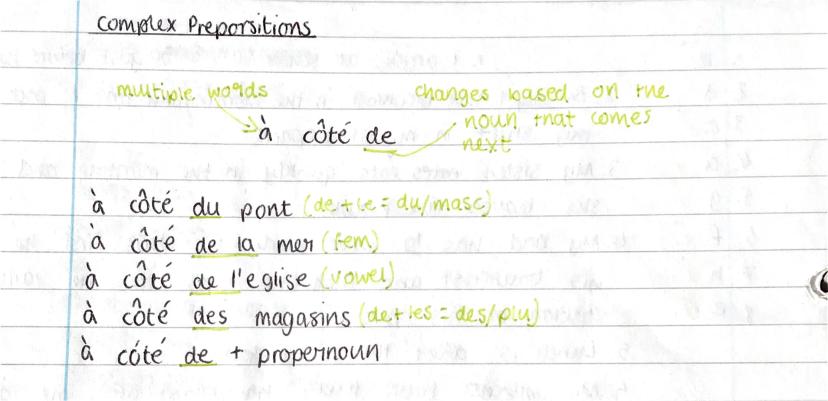 Complex Preporsitions
multiple words
changes based on the
noun that comes
next
à côté de
à côté du pont (de + le = du/masc)
à côté de la mer (fem)
à côté de l'eglise (vowel)
à côté des magasins (de + les = des/plu)
à cóté de + propernoun